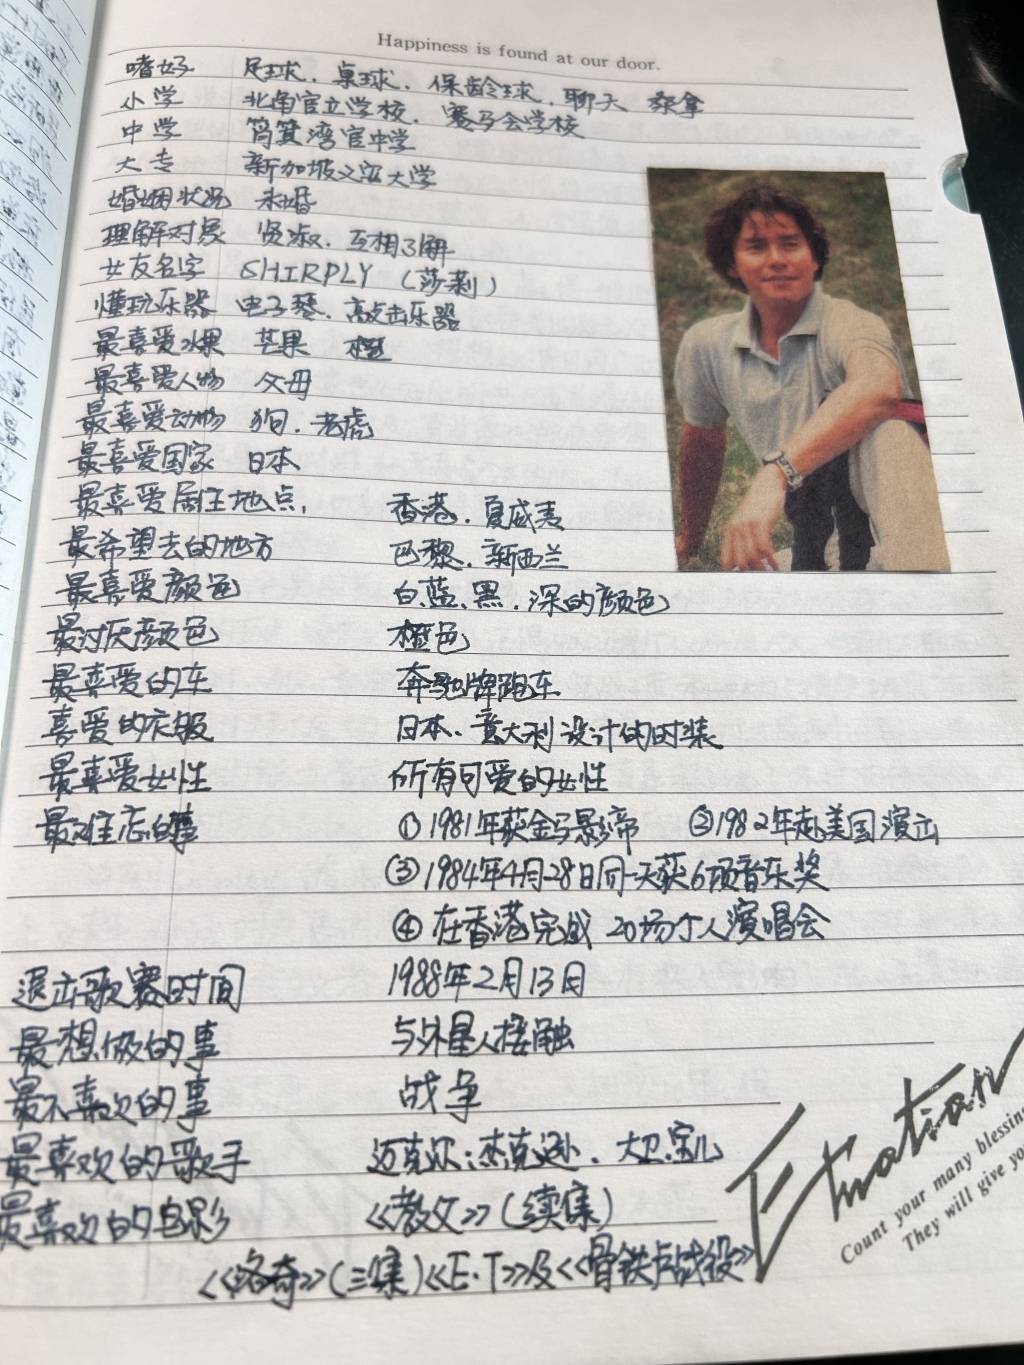 Happiness is found at our door.
嗜好 足球、桌球、保龄球、聊天 桑拿
小学 北角官立学校、赛马会学校
中学 筲箕湾官中学
大专 新加坡义安大学
婚姻状况 未婚
理解对象 贤淑、互相了解
女友名字 SHIRPLY (莎莉)
懂玩乐器 电子琴、敲击乐器
最喜爱水果 芒果 橙
最喜爱人物 父母
最喜爱动物 狗、老虎
最喜爱国家 日本
最喜爱居住地点 香港、夏威夷
最希望去的地方 巴黎、新西兰
最喜爱颜色 白、蓝、黑、深的颜色
最讨厌颜色 橙色
最喜爱的车 奔驰牌跑车
喜爱的衣服 日本、意大利设计的时装
最喜爱女性 所有可爱的女性
最难忘的事 ①1981年获金马影帝 ②1982年赴美国演出
③1984年4月28日同一天获6项音乐奖
④在香港完成20场个人演唱会
退出歌赛时间 1988年2月13日
最想做的事 与外星人接触
最不喜欢的事 战争
最喜欢的歌手 迈克尔:杰克逊、大卫:宝儿
最喜欢的电影 《教父》(续集)
《洛奇》(三集)《E·T》及《骨铁卢战役》
Emotion
Count your many blessin
They will give yo